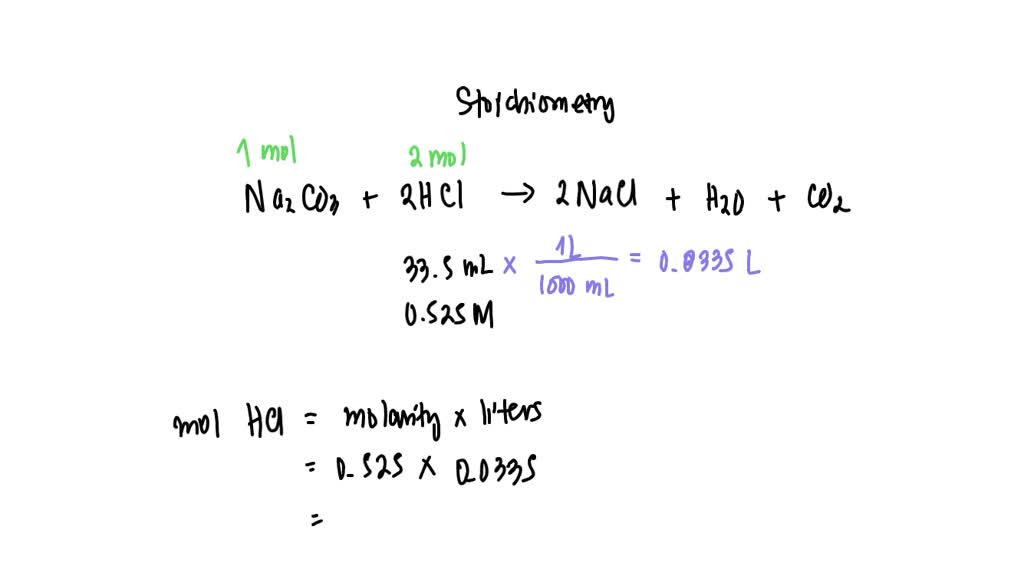 Stoichiometry
1 mol 2 mol
Na₂CO₃ + 2HCl → 2NaCl + H₂O + CO₂
33.5 mL × 1L / 1000 mL = 0.0335 L
0.525 M
mol HCl = molarity × liters
= 0.525 × 0.0335
=